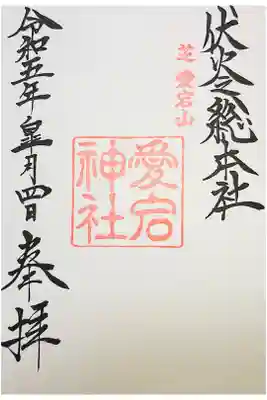 伏火之総本社
芝 愛宕山
愛宕
神社
奉拝
令和五年皐月四日